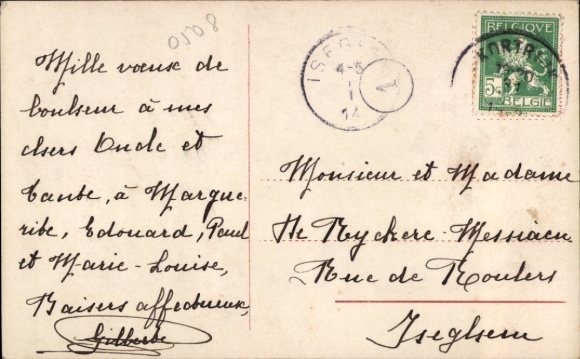 0198
Mille vœux de
bonheur à mes
chers Oncle et
Tante, à Margue-
rite, Edouard, Paul
et Marie-Louise,
Baisers affectueux,
Gilberte
ISEG
4-5
1
I
14
1
BELGIQUE
5
BELGIË
KORTRIJK
Monsieur et Madame
De Ryckere-Messiaen
Rue de Roulers
Iseghem